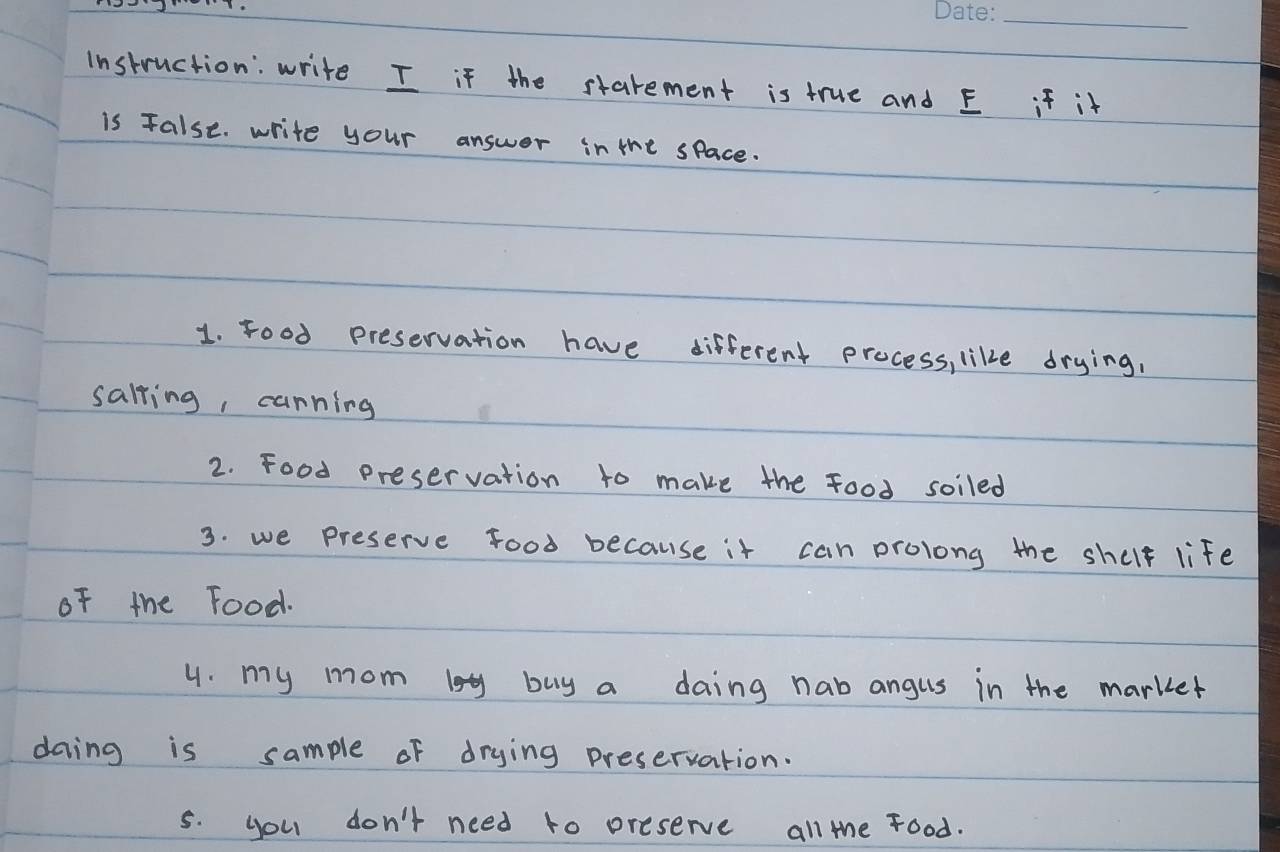 Date:
Instruction: write T if the statement is true and F if it
is False. write your answer in the space.
1. Food preservation have different process, like drying,
salting, canning
2. Food preservation to make the Food soiled
3. we preserve food because it can prolong the shelf life
of the Food.
4. my mom buy a daing nab angus in the market
daing is sample of drying preservation.
5. you don't need to preserve all the Food.